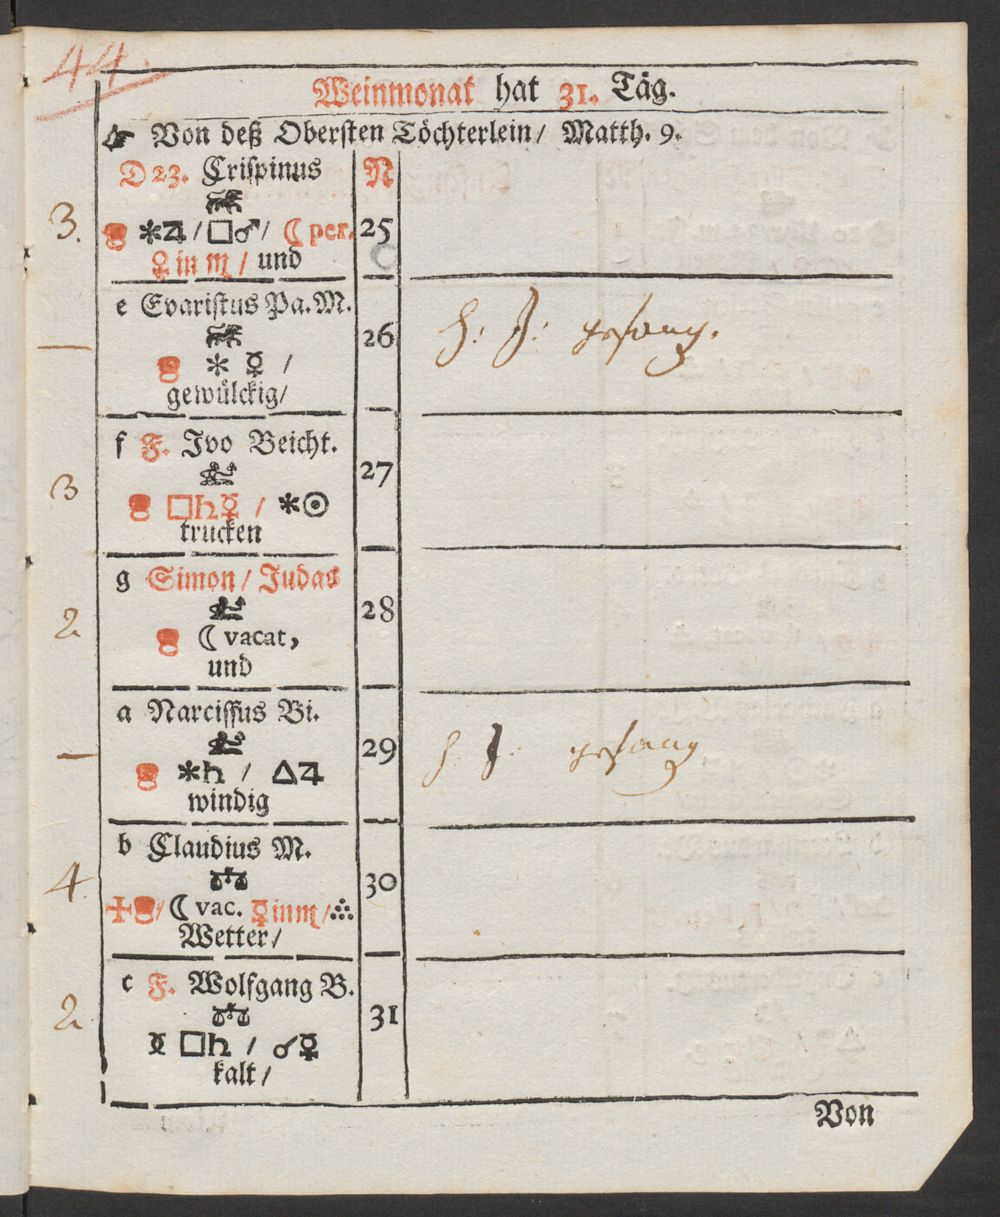 44.
Weinmonat hat 31. Täg.
☛ Von deß Obersten Töchterlein/ Matth. 9.
D 23. Crispinus N
3. ✱♃ /□♂/ ☾ per. 25
♀ in ♏ / und
e Evaristus Pa. M.
— 26 h: J:
✱ ☿ /
gewülckig/
f F. Ivo Beicht.
3 27
□♄☿ / ✱☉
trucken
g Simon/ Judas
2 28
☾ vacat,
und
a Narcissus Bi.
— 29 h J:
✱♄ / △♃
windig
b Claudius M.
4. 30
☾ vac. ☿ in ♏/
Wetter/
c F. Wolfgang B.
2 31
□♄ / ☌☿
kalt/
Von